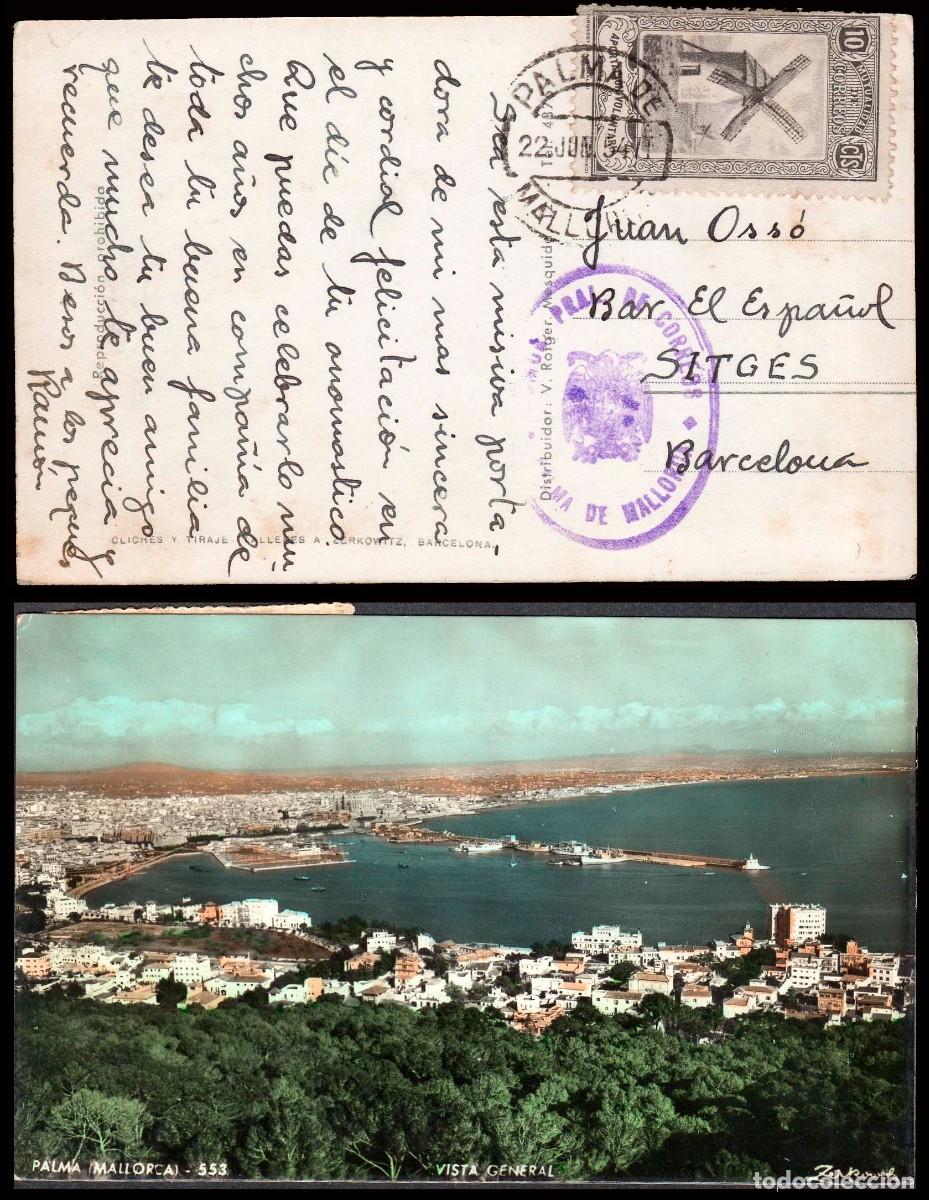 Sea esta misiva porta,
dora de mi mas sincera
y cordial felicitación en
el die de tu onomastico
Que puedas celebrarlo mu,
chos años en compañia de
toda tu buena familia
te desea tu buen amigo
que mucho te aprecia y
recuerda. Besos a los peques
Ramón
Reproducción prohibida
CLICHES Y TIRAJE TALLERES A. ZERKOWITZ, BARCELONA.
Distribuidor: V. Rotger Mezquida
PALMA DE
22 JUN 54
MALLORCA
10
MUTUALIDAD
CORREOS
CTS
APORTACION VOLUNTARIA
PRAL. DE CORREOS
PALMA DE MALLORCA
Juan Ossó
Bar El Español
SITGES
Barcelona
PALMA (MALLORCA) - 553
VISTA GENERAL
Zerkowitz
todocoleccion